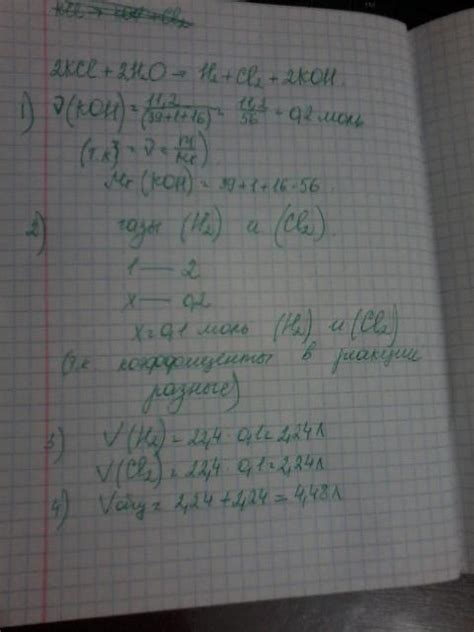 2KCl + 2H₂O → H₂ + Cl₂ + 2KOH.
1) ν(KOH) = 11,2/(39+1+16) = 11,2/56 = 0,2 моль
(т.к ν = m/Mr)
Mr (KOH) = 39+1+16=56.
2) газы (H₂) и (Cl₂).
1 — 2
x — 0,2
x = 0,1 моль (H₂) и (Cl₂)
(т.к коэффициенты в реакции
разные)
3) V(H₂) = 22,4 · 0,1 = 2,24л
V(Cl₂) = 22,4 · 0,1 = 2,24л
4) Vобщ = 2,24 + 2,24 = 4,48л